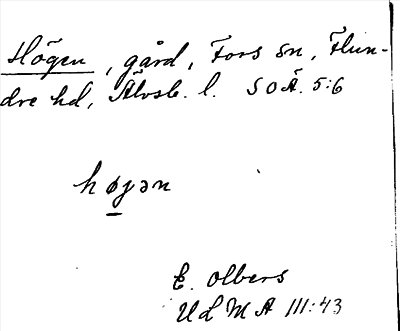 Högen, gård, Fors sn, Flun-
dre hd, Älvsb. l. SOÄ. 5:6
højən
E. Olbers
ULMA 111:43